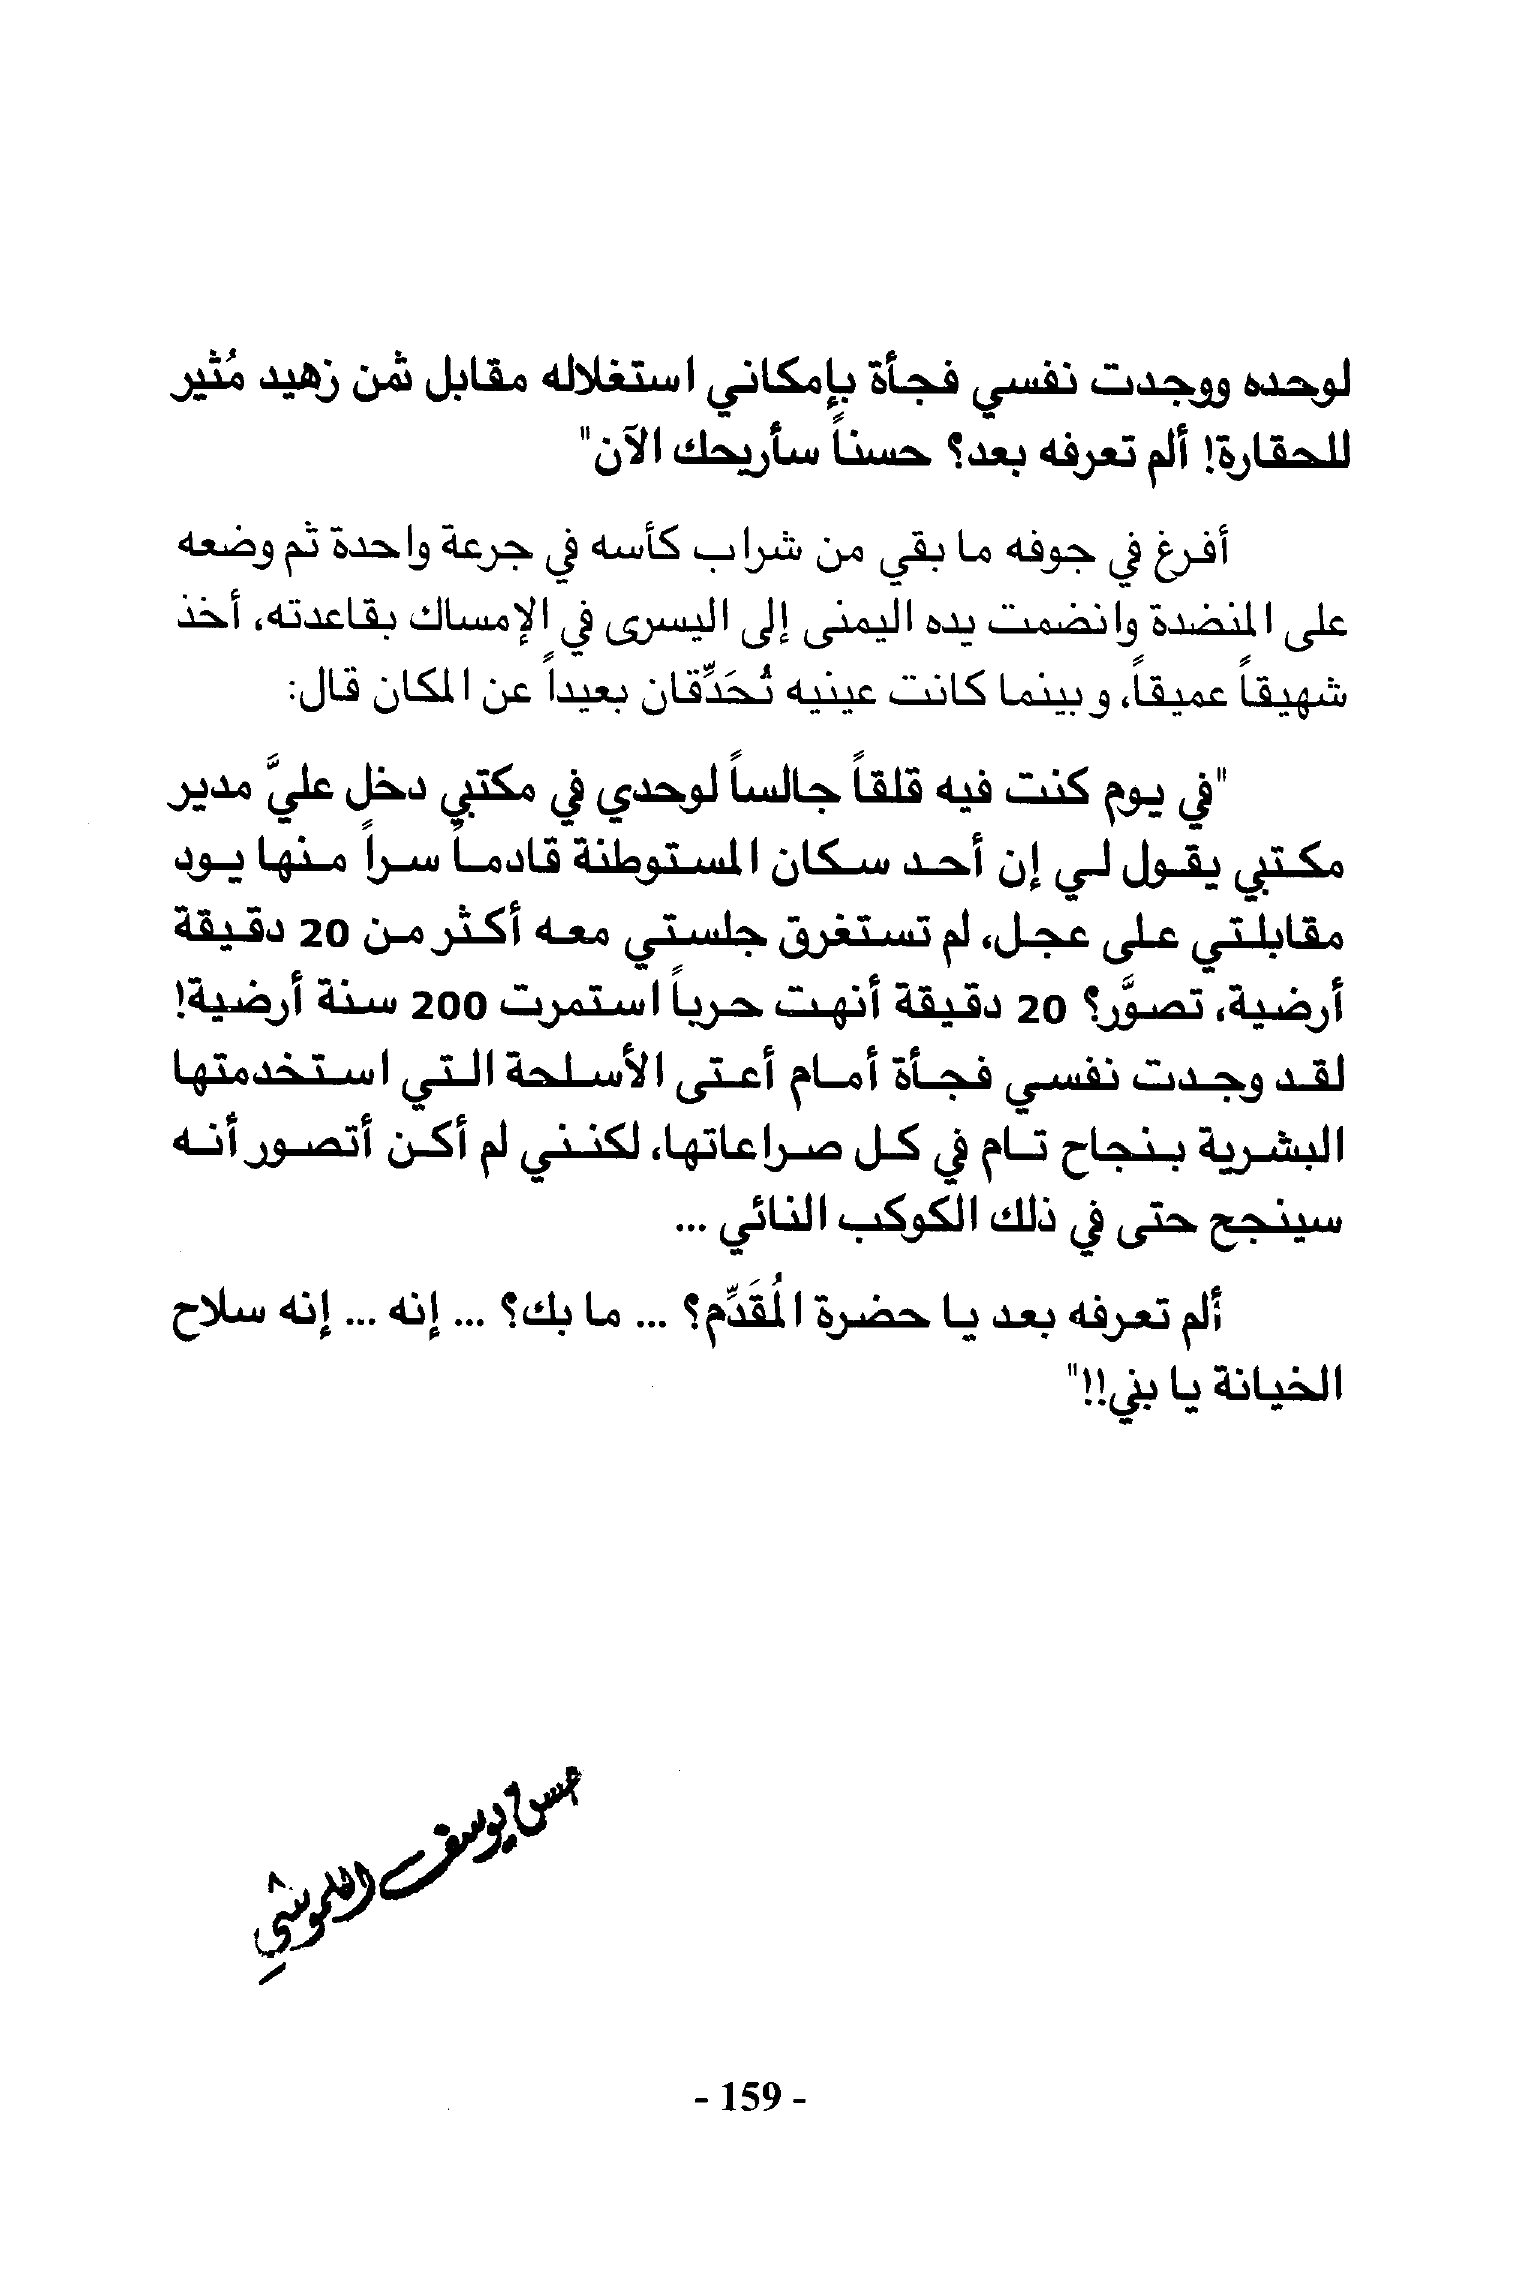 لوحده ووجدت نفسي فجأة بإمكاني استغلاله مقابل ثمن زهيد مُثير
للحقارة! ألم تعرفه بعد؟ حسناً سأريحك الآن"
أفرغ في جوفه ما بقي من شراب كأسه في جرعة واحدة ثم وضعه
على المنضدة وانضمت يده اليمنى إلى اليسرى في الإمساك بقاعدته، أخذ
شهيقاً عميقاً، وبينما كانت عينيه تُحَدِّقان بعيداً عن المكان قال:
"في يوم كنت فيه قلقاً جالساً لوحدي في مكتبي دخل عليَّ مدير
مكتبي يقول لي إن أحد سكان المستوطنة قادماً سراً منها يود
مقابلتي على عجل، لم تستغرق جلستي معه أكثر من 20 دقيقة
أرضية، تصوَّر؟ 20 دقيقة أنهت حرباً استمرت 200 سنة أرضية!
لقد وجدت نفسي فجأة أمام أعتى الأسلحة التي استخدمتها
البشرية بنجاح تام في كل صراعاتها، لكنني لم أكن أتصور أنه
سينجح حتى في ذلك الكوكب النائي ...
ألم تعرفه بعد يا حضرة المُقَدِّم؟ ... ما بك؟ ... إنه ... إنه سلاح
الخيانة يا بني!!"
حسن يوسف
- 159 -